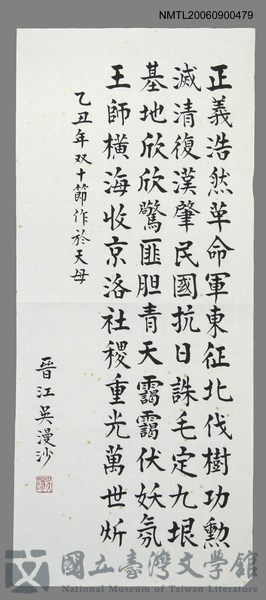 NMTL20060900479
正義浩然革命軍東征北伐樹功勲
滅清復漢肇民國抗日誅毛定九垠
基地欣欣驚匪胆青天靄靄伏妖氛
王師横海收京洛社稷重光萬世炘
乙丑年双十節作於天母
晋江吴漫沙
國立臺灣文學館
National Museum of Taiwan Literature